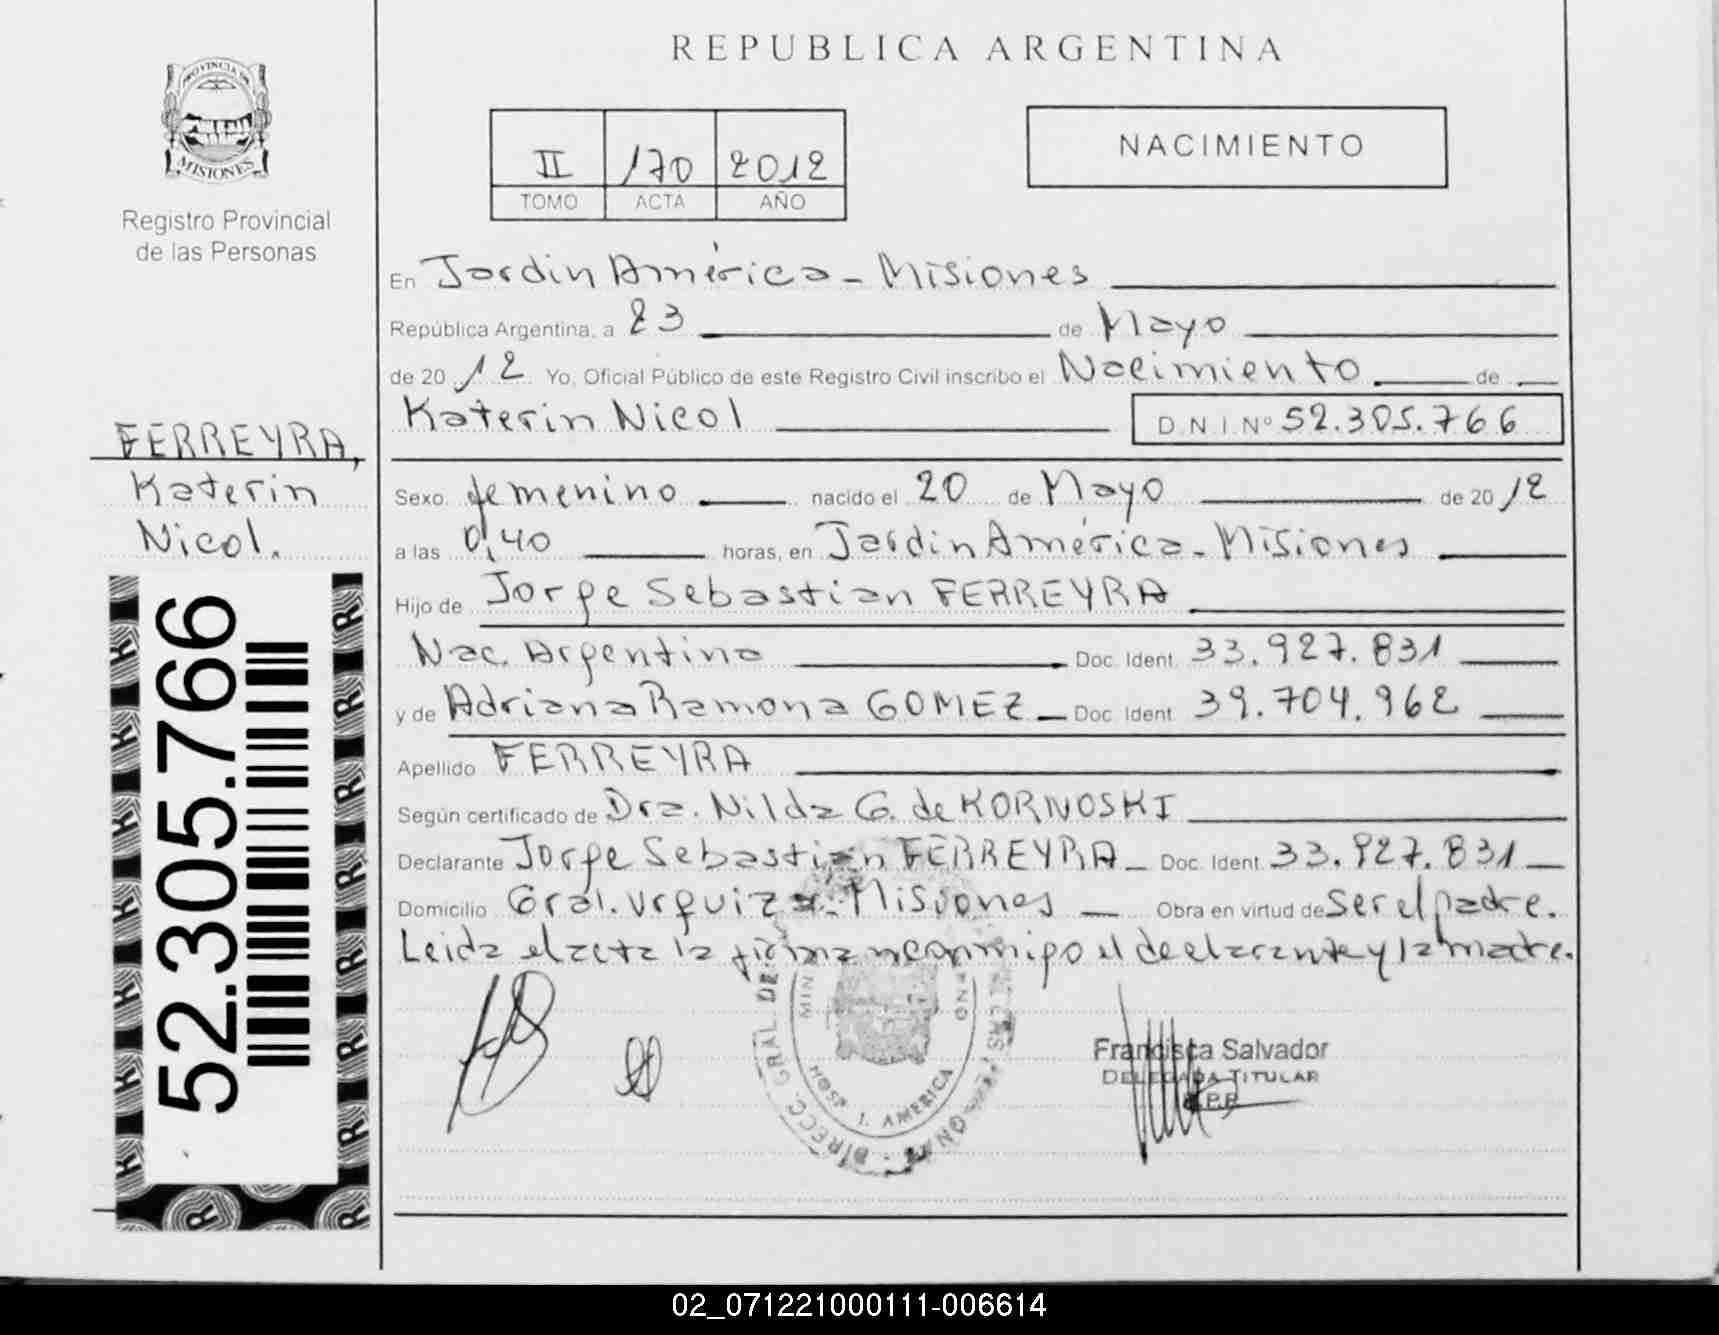 REPUBLICA ARGENTINA
PROVINCIA DE
MISIONES
Registro Provincial
de las Personas
II 170 2012
TOMO ACTA AÑO
NACIMIENTO
En Jardin América - Misiones
República Argentina, a 23 de Mayo
de 20 12 Yo, Oficial Público de este Registro Civil inscribo el Nacimiento de
Katerin Nicol D.N.I. Nº 52.305.766
FERREYRA,
Katerin
Nicol.
Sexo femenino nacido el 20 de Mayo de 20 12
a las 0,40 horas, en Jardin América - Misiones
Hijo de Jorge Sebastian FERREYRA
Nac. Argentina Doc. Ident. 33.927.831
y de Adriana Ramona GOMEZ - Doc. Ident. 39.704.962
Apellido FERREYRA
Según certificado de Dra. Nilda G. de KORNOSKI
Declarante Jorge Sebastian FERREYRA - Doc. Ident. 33.927.831
Domicilio Gral. Urquiza - Misiones Obra en virtud de Ser el padre.
Leida el acta la firman conmigo el declarante y la madre.
52.305.766
DIRECC. GRAL. DE
HOSP J. AMERICA
Francisca Salvador
DELEGADA TITULAR
R.P.P.
02_071221000111-006614